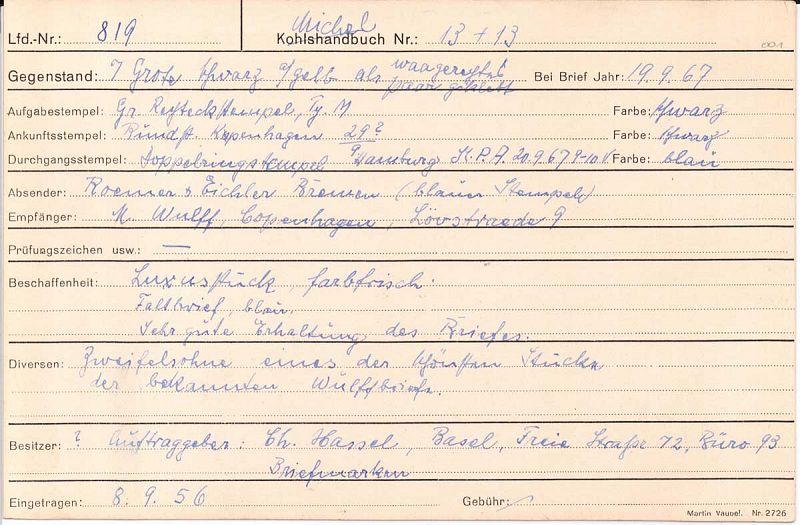 Michel
Lfd.-Nr.: 819 Kohlshandbuch Nr.: 13 + 13
001
waagerechtes
Gegenstand: 7 Grote schwarz a/gelb als paar geklebt Bei Brief Jahr: 19.9.67
Aufgabestempel: Gr. Rechteckstempel, Ty. M Farbe: schwarz
Ankunftsstempel: Rundst. Kopenhagen 29? Farbe: schwarz
Durchgangsstempel: Doppelringstempel Hamburg St.P.A. 20.9.67 9-10 V. Farbe: blau
Absender: Roemer & Eichler Bremen (blauer Stempel)
Empfänger: M. Wulff, Copenhagen, Lövstraede 9
Prüfungszeichen usw.: —
Beschaffenheit: Luxusstück, farbfrisch.
Faltbrief, blau.
Sehr gute Erhaltung des Briefes.
Diversen: Zweifelsohne eines der schönsten Stücke
der bekannten Wulffbriefe.
Besitzer: ? Auftraggeber: Ch. Hassel, Basel, Freie Straße 72, Büro 93
Briefmarken
Eingetragen: 8.9.56 Gebühr:
Martin Vaupel. Nr. 2726